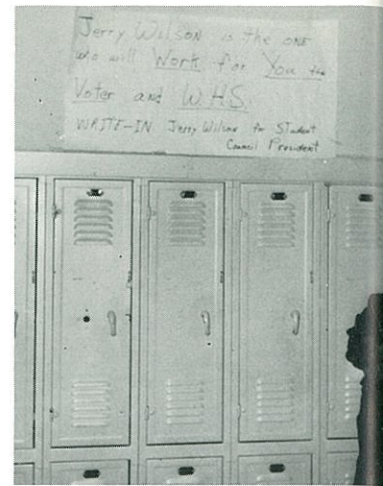 Jerry Wilson is the ONE
who will Work for You the
Voter and W.H.S.
WRITE-IN Jerry Wilson for Student
Council President